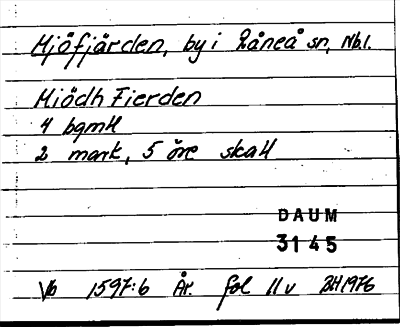 Mjöfjärden, by i Råneå sn, Nb.l.
Miödh Fierden
4 bgmH
2 mark, 5 öre skatt
DAUM
3145
Vb 1597:6 År. fol 11v BH1976